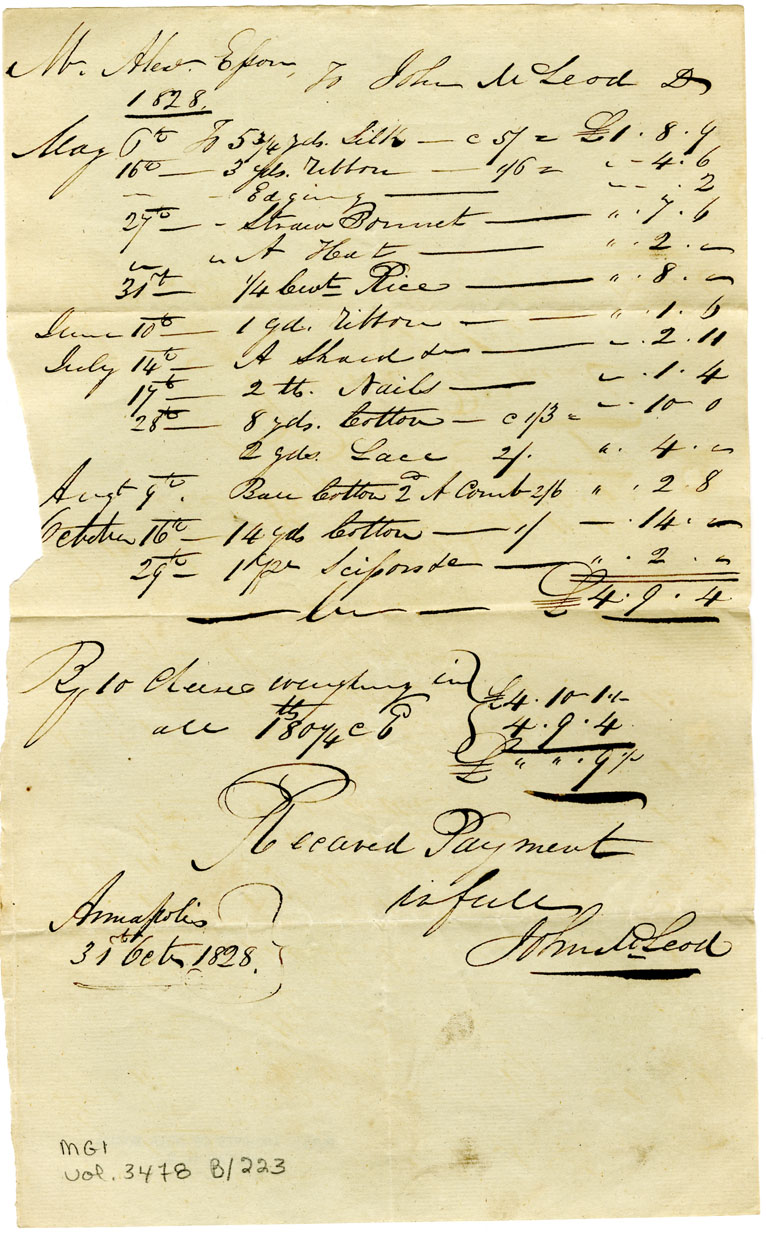 Mr. Alexr. Esson, To John McLeod Dr
1828.
May 6th To 5 3/4 yds. Silk — @ 5/ = £1.8.9
16th — 3 yds. ribbon — 1/6 = " - 4.6
— - Edging — " - . 2
27th — - Straw Bonnet — " . 7 . 6
" " A Hat — " . 2 . "
31st — 1/4 Cwt Rice — " . 8 . "
June 10th — 1 yd. ribbon — — " . 1 . 6
July 14th — A Shawl &c — " . 2 . 11
17th — 2 lb. Nails — " . 1 . 4
28th — 8 yds. Cotton — @ 1/3 = " - 10 - 0
2 yds. Lace 2/. " . 4 . "
Augt 9th. Ball Cotton 2d A Comb 2/6 " . 2 . 8
October 16th — 14 yds Cotton — 1/ — . 14 . "
29th — 1 pr Scissors &c — " . 2 . "
£4.9.4
By 10 Cheeses weighing in
all 180 1/4 lb @ 6 £4.10.1 1/2
4.9.4
£ " " . 9 1/2
Received Payment
in full
John McLeod
Annapolis
31st Octr 1828.
MG1
Vol. 3478 B/223